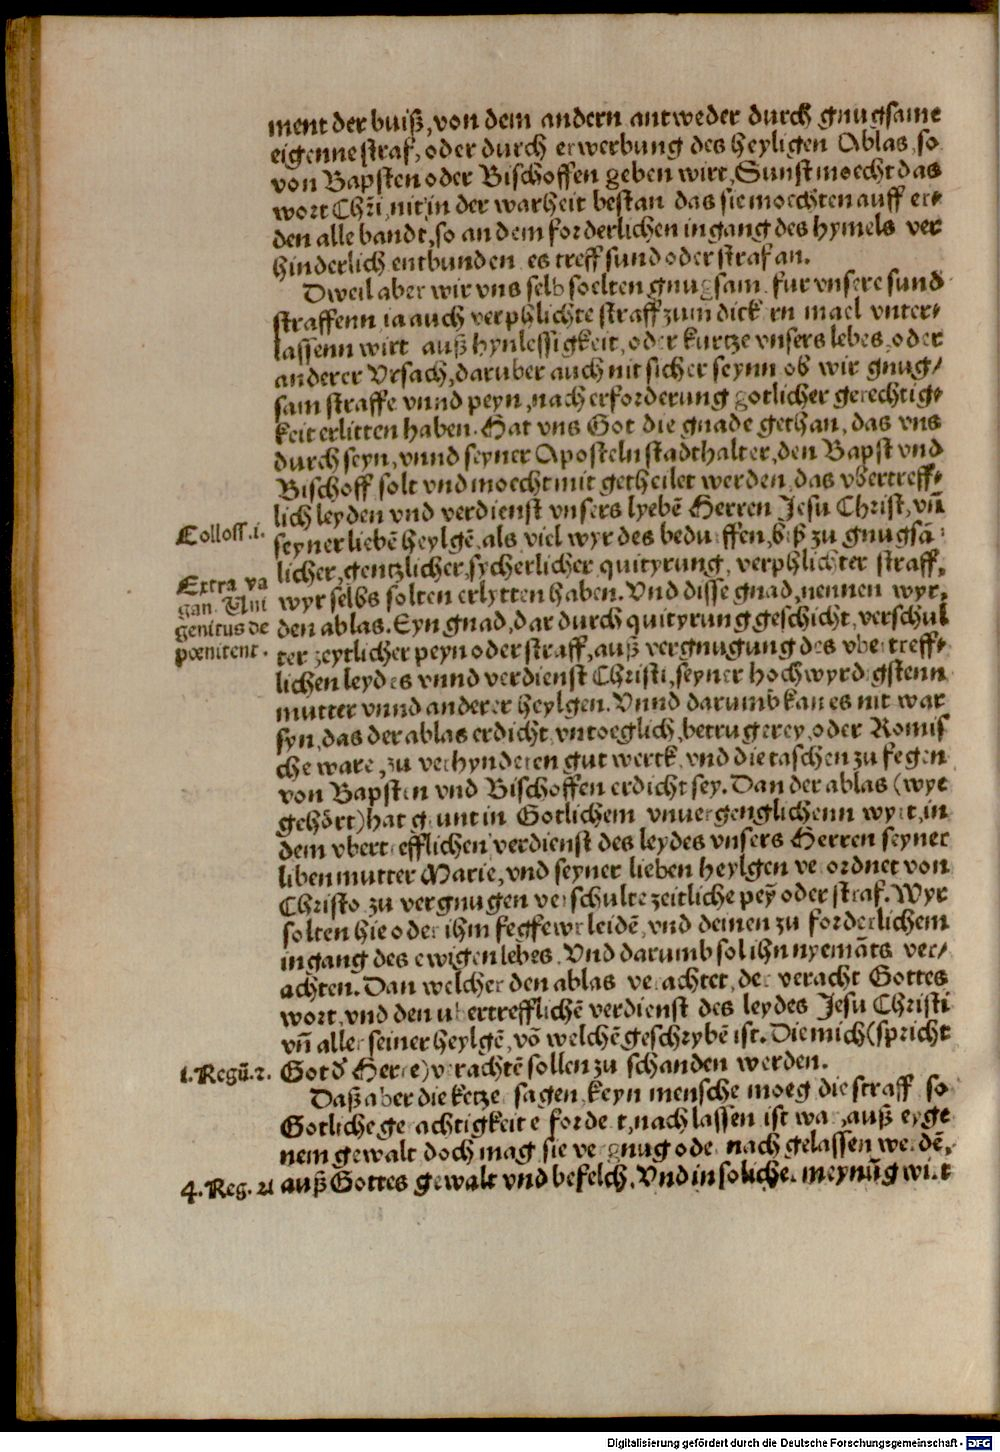 ment der buiß, von dem andern antweder durch gnugsame
eigenne straf, oder durch erwerbung des heyligen Ablas, so
von Bapsten oder Bischoffen geben wirt, Sunst moecht das
wort Chr̃i, nit in der warheit bestan das sie moechten auff er⸗
den alle bandt, so an dem forderlichen ingang des hymels ver
hinderlich entbunden es treff sund oder straf an.
Dweil aber wir vns selb soelten gnugsam fur vnsere sund
straffenn ia auch verphlichte straff zum dick ern mael vnter⸗
lassenn wirt auß hynlessigkeit, oder kurtze vnsers lebes, oder
anderer Vrsach, daruber auch nit sicher seynn ob wir gnug⸗
sam straffe vnnd peyn, nach erforderung gotlicher gerechtig⸗
keit erlitten haben. Hat vns Got die gnade gethan, das vns
durch seyn, vnnd seyner Aposteln stadthalter, den Bapst vnd
Bischoff solt vnd moecht mit getheilet werden, das vbertreff⸗
lich leyden vnd verdienst vnsers lyebẽ Herren Jesu Christ, vñ
Colloss. i.
seyner liebẽ heylgẽ, als viel wyr des bedurffen, biß zu gnugsã
licher, gentzlicher, sycherlicher quityrung, verphlichter straff,
Extra va
gan. Vni
genitus de
pœnitent.
wyr selbs solten erlytten haben. Vnd disse gnad, nennen wyr,
den ablas. Eyn gnad, dar durch quityrung geschicht, verschul
ter zeytlicher peyn oder straff, auß vergnugung des vbertreff⸗
lichen leydes vnnd verdienst Christi, seyner hochwyrdigstenn
mutter vnnd anderer heylgen. Vnnd darumb kan es nit war
syn, das der ablas erdicht, vntoeglich, betrugerey, oder Romis
che ware, zu verhynderen gut werck, vnd die taschen zu fegen
von Bapsten vnd Bischoffen erdicht sey. Dan der ablas (wye
gehört) hat grunt in Gotlichem vnuergenglichenn wort, in
dem vbertrefflichen verdienst des leydes vnsers Herren seyner
liben mutter Marie, vnd seyner lieben heylgen verordnet von
Christo zu vergnugen verschulte zeitliche peỹ oder straf. Wyr
solten hie oder ihm fegfewr leidẽ, vnd deinen zu forderlichem
ingang des ewigen lebes. Vnd darumb sol ihn nyemãts ver⸗
achten. Dan welcher den ablas verachtet, der veracht Gottes
wort, vnd den ubertrefflichẽ verdienst des leydes Jesu Christi
vñ aller seiner heylgẽ, võ welchẽ geschrybẽ ist. Die mich (spricht
1. Regũ. 2.
Got d' Herre) verachtẽ sollen zu schanden werden.
Daß aber die ketzer sagen, keyn mensche moeg die straff so
Gotliche gerachtigkeit erfordert, nach lassen ist war, auß eyge
nem gewalt doch mag sie vergnug oder nach gelassen werdẽ,
4. Reg. 21
auß Gottes gewalt vnd befelch. Vnd in solicher meynũg wirt
Digitalisierung gefördert durch die Deutsche Forschungsgemeinschaft - DFG